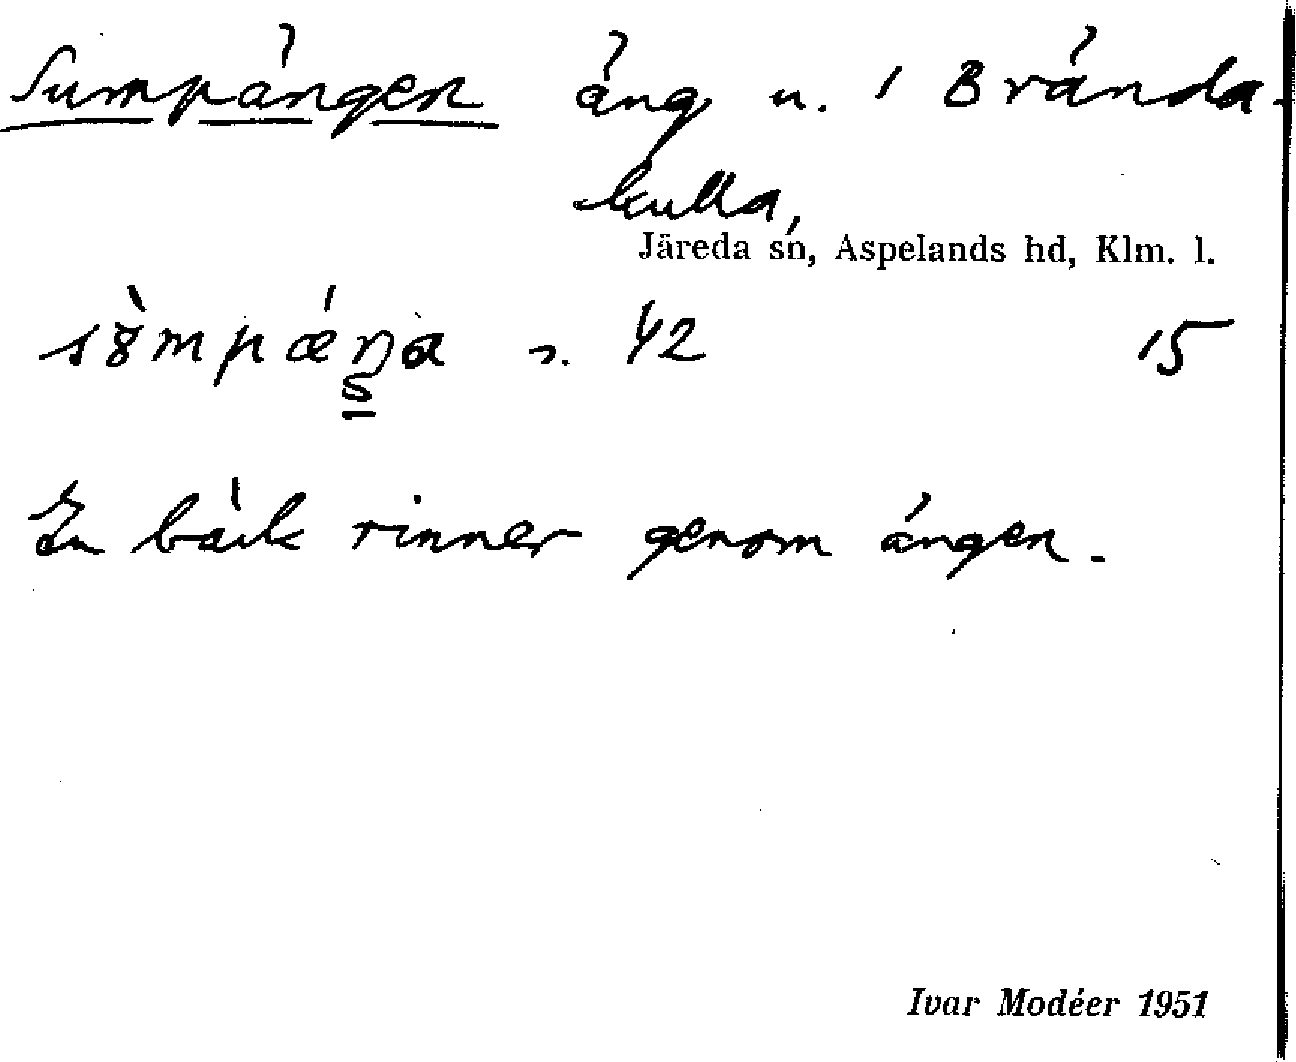 Sumpängen äng n. i Brända-
kulla,
Järeda sn, Aspelands hd, Klm. l.
42 15
En bäck rinner genom ängen.
Ivar Modéer 1951